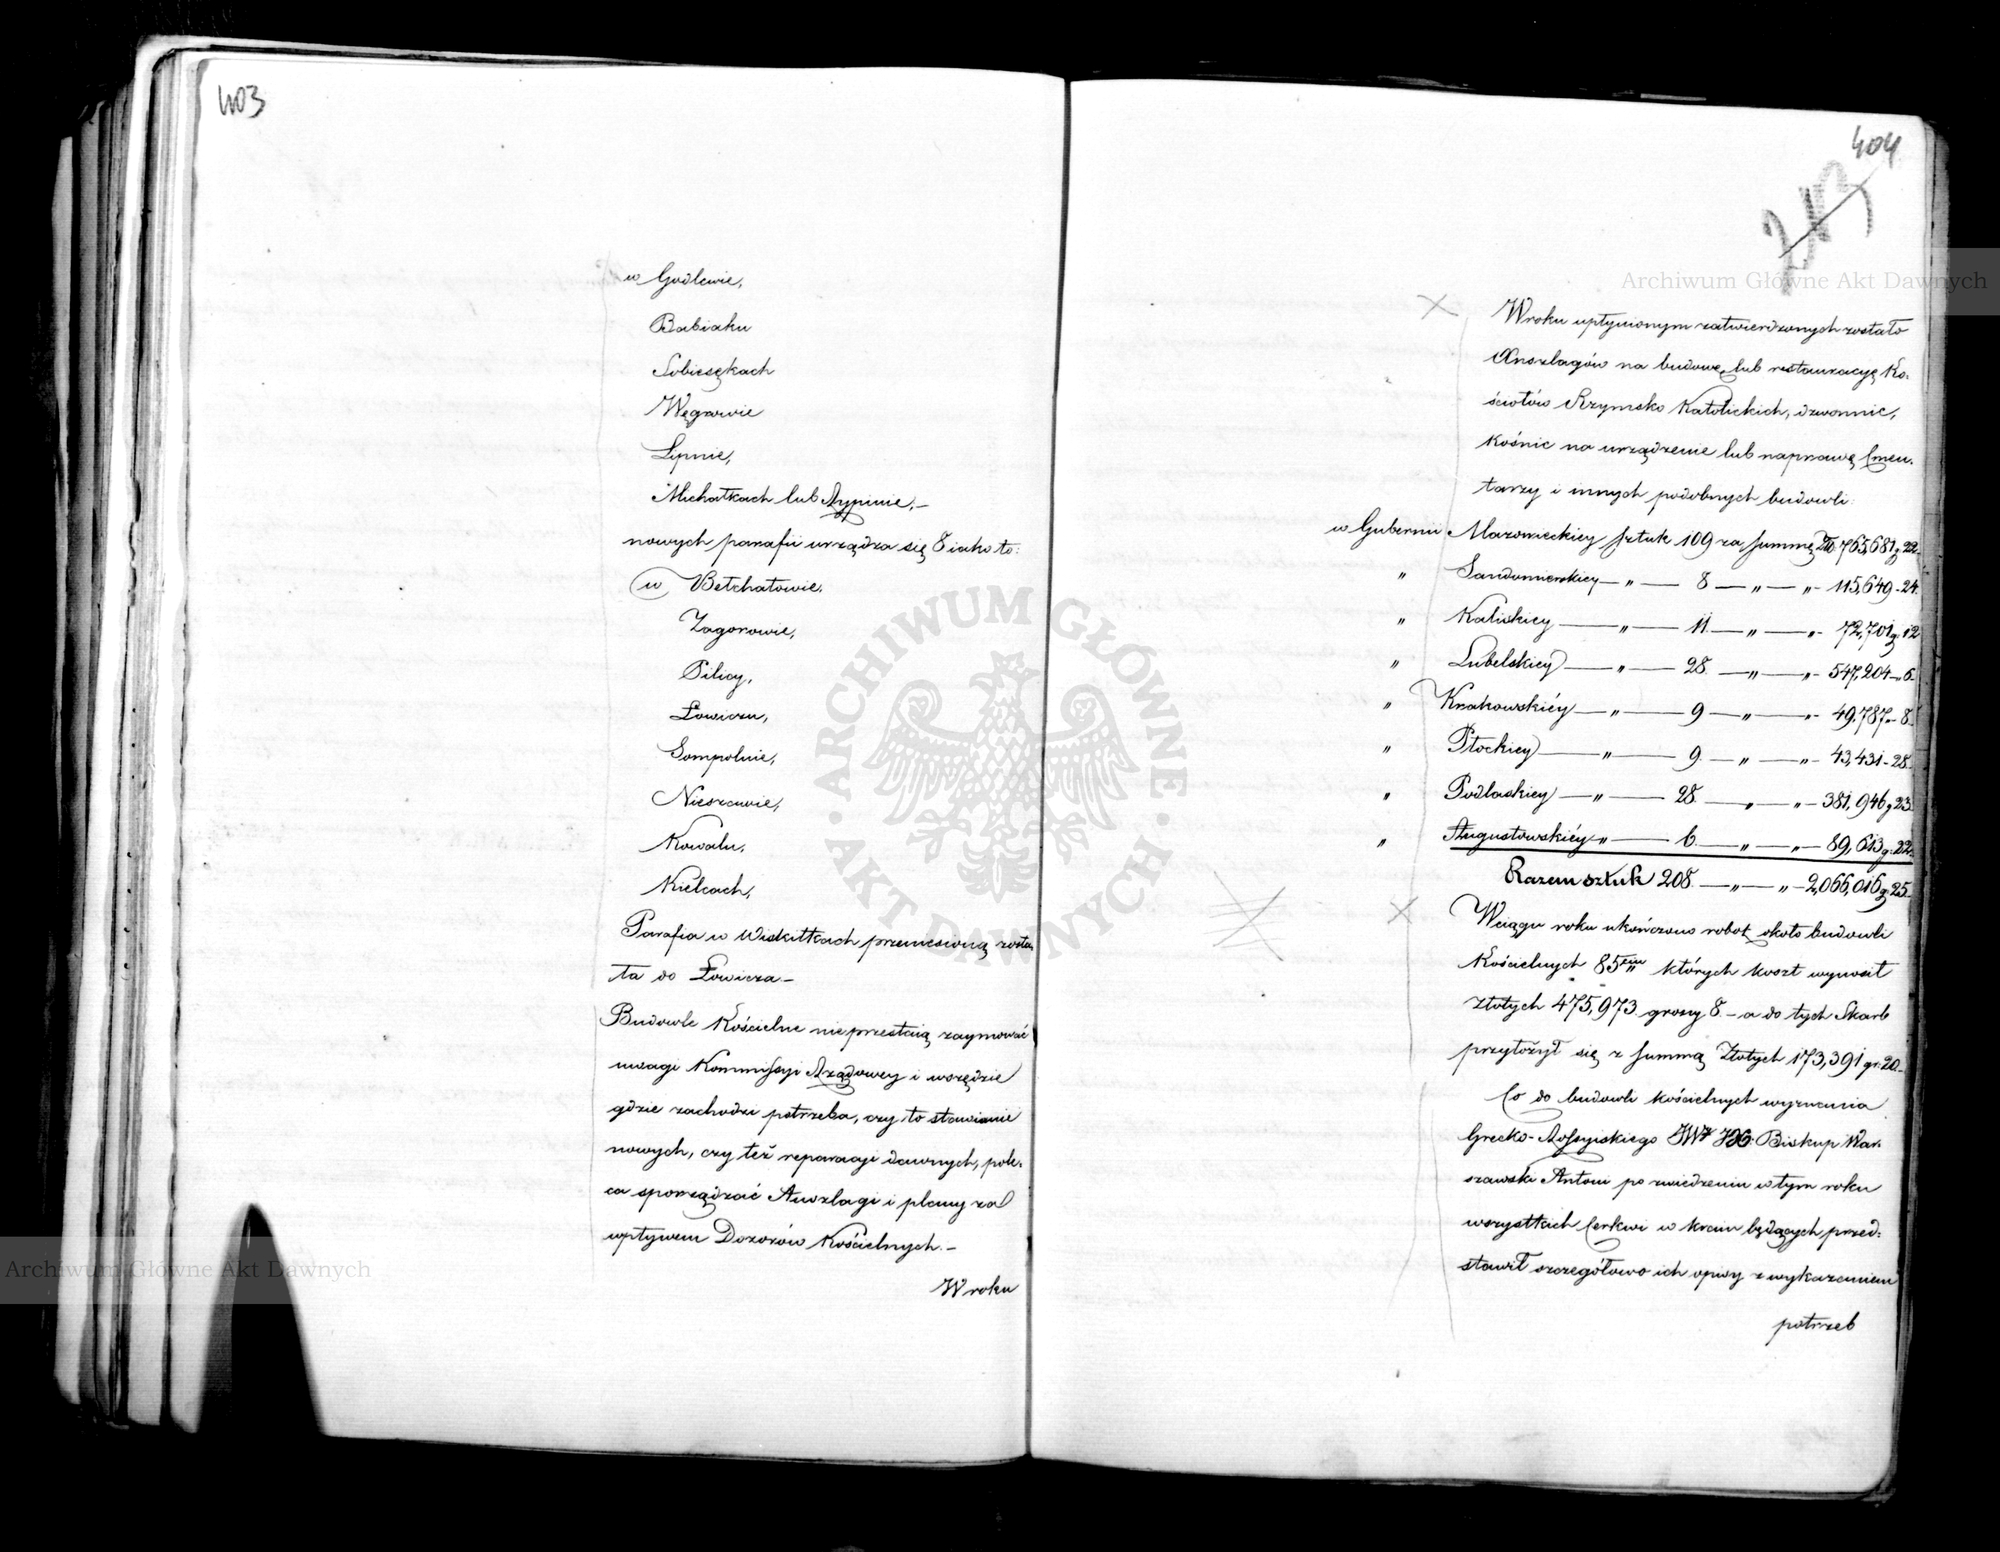 403
w Godlewie,
Babiaku
Sobiesękach
Węgrowie
Lipnie,
Michałkach lub Rypinie,—
nowych parafii urządza się 8 iako to:
w Bełchatowie,
Zagorowie,
Pilicy,
Łowiczu,
Sompolnie,
Nieszawie,
Kowalu,
Kielcach,
Parafia w Wiskitkach przeniesioną zosta
ła do Łowicza—
Budowle Kościelne nieprzestaią zaymować
uwagi Kommissyi Rządowey i wszędzie
gdzie zachodzi potrzeba, czy to stawianie
nowych, czy też reparacyi dawnych, pole,
ca sporządzać Anszlagi i plany za
wpływem Dozorów Kościelnych.—
W roku
404
243
W roku upłynionym zatwierdzonych zostało
Anszlagów na budowę lub restauracyę Ko,
ściołów Rzymsko Katolickich, dzwonnic,
Kośnic na urządzenie lub naprawę Cmen,
tarzy i innych podobnych budowli:
w Gubernii Mazowieckiey sztuk 109 za summę Złt. 765,681 g. 22.
" Sandomierskiey — " — 8 — " — " — 115,649 - 24.
" Kaliskiey — " — 11 — " — " — 72,701 g. 12
" Lubelskiey — " — 28 — " — " — 547,204 - " 6.
" Krakowskiéy — " — 9 — " — " — 49,787 - " 8.
" Płockiey — " — 9. — " — " — 43,431 - 28.
" Podlaskiey — " — 28. — " — " — 381,946 g 23.
" Augustowskiéy — " — 6. — " — " — 89,613 g. 22.
Razem sztuk 208. — " — " — 2,066,016 g. 25.
W ciągu roku ukończono robot około budowli
Kościelnych 85em których koszt wynosił
złotych 475,973 groszy 8.— a do tych Skarb
przyłożył się z summą Złotych 173,391 gr. 20.—
Co do budowli kościelnych wyznania
Grecko-Rossyiskiego JW JX: Biskup War,
szawski Antoni po zwiedzeniu w tym roku
wszystkich Cerkwi w kraiu będących przed,
stawił szczegółowo ich opisy z wykazaniem
potrzeb
Archiwum Główne Akt Dawnych
Archiwum Główne Akt Dawnych
ARCHIWUM GŁÓWNE · AKT DAWNYCH ·